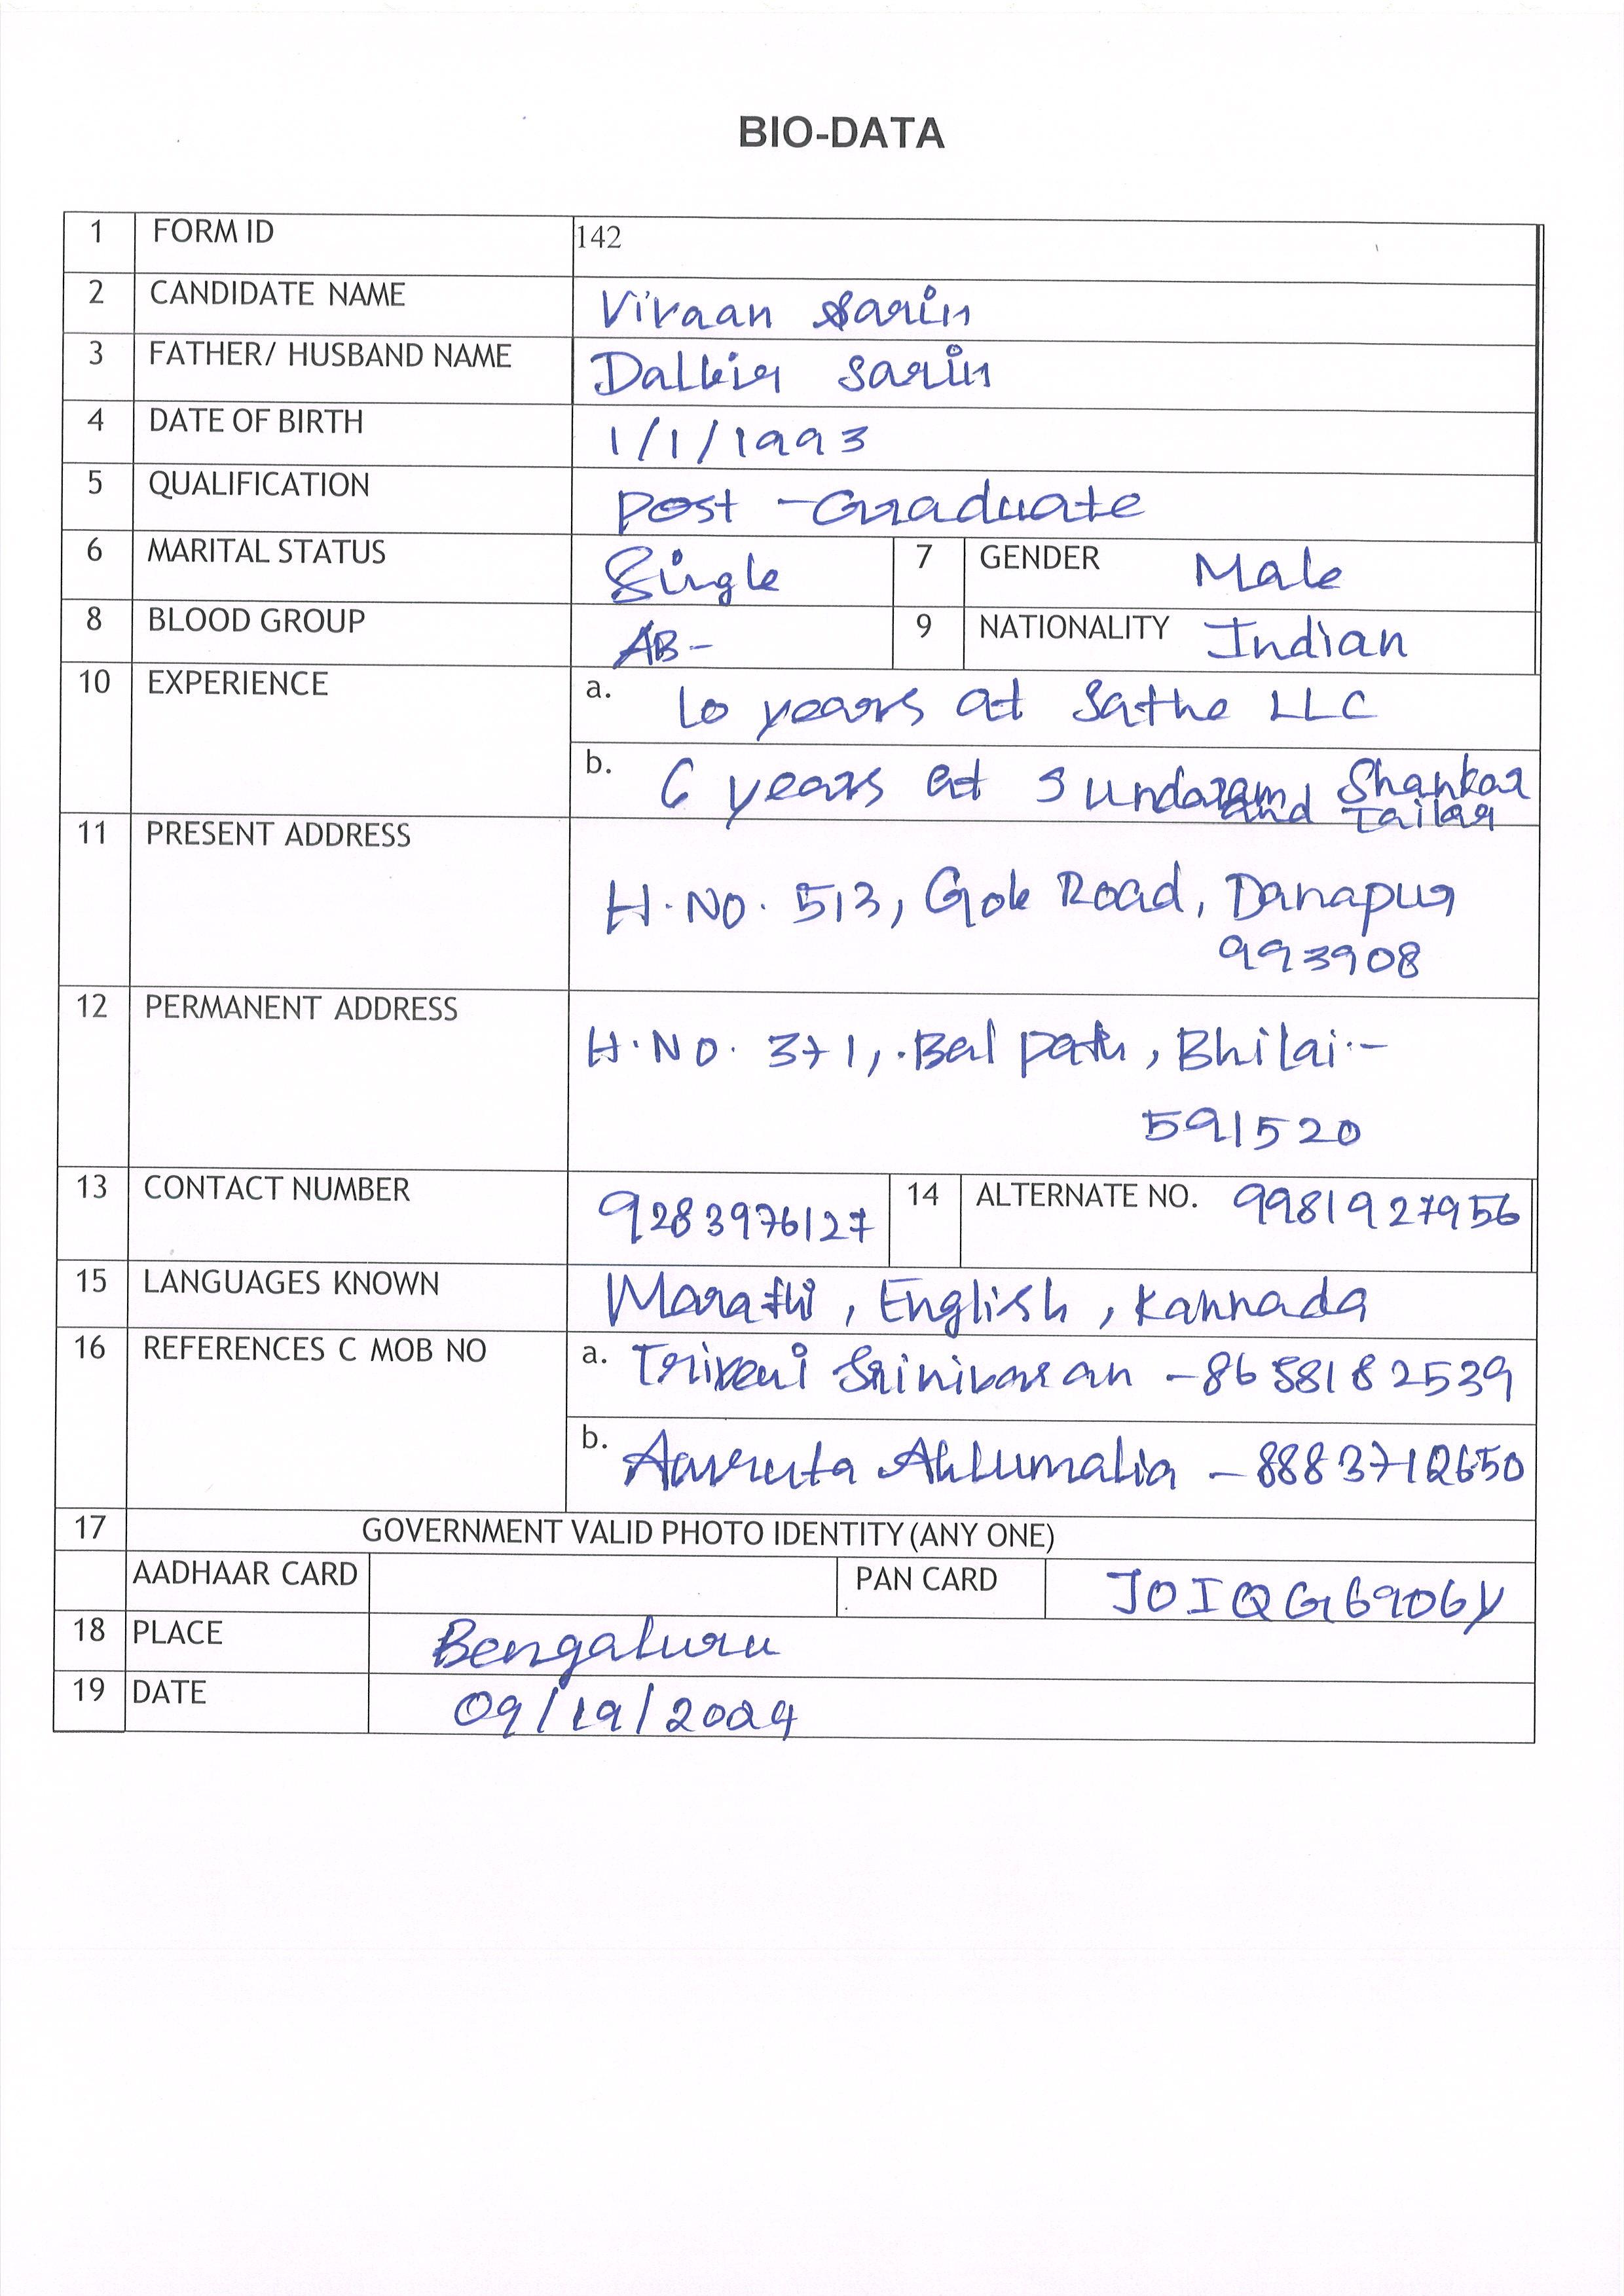 BIO-DATA
1 FORM ID 142
2 CANDIDATE NAME Vivaan Sarin
3 FATHER/ HUSBAND NAME Dalbir Sarin
4 DATE OF BIRTH 1/1/1993
5 QUALIFICATION Post -Graduate
6 MARITAL STATUS Single 7 GENDER Male
8 BLOOD GROUP AB- 9 NATIONALITY Indian
10 EXPERIENCE a. 10 years at Sathe LLC
b. 6 years at Sundaram Shankar
and Tailor
11 PRESENT ADDRESS
H.NO. 513, Gola Road, Danapur
993908
12 PERMANENT ADDRESS
H.NO. 371, Bal path, Bhilai-
591520
13 CONTACT NUMBER 9283976127 14 ALTERNATE NO. 9981927956
15 LANGUAGES KNOWN Marathi, English, Kannada
16 REFERENCES C MOB NO a. Triveni Srinivasan -8658182539
b. Ahlumalia - 8883712650
17 GOVERNMENT VALID PHOTO IDENTITY (ANY ONE)
AADHAAR CARD PAN CARD JOIQG6906Y
18 PLACE Bengaluru
19 DATE 09/19/2024